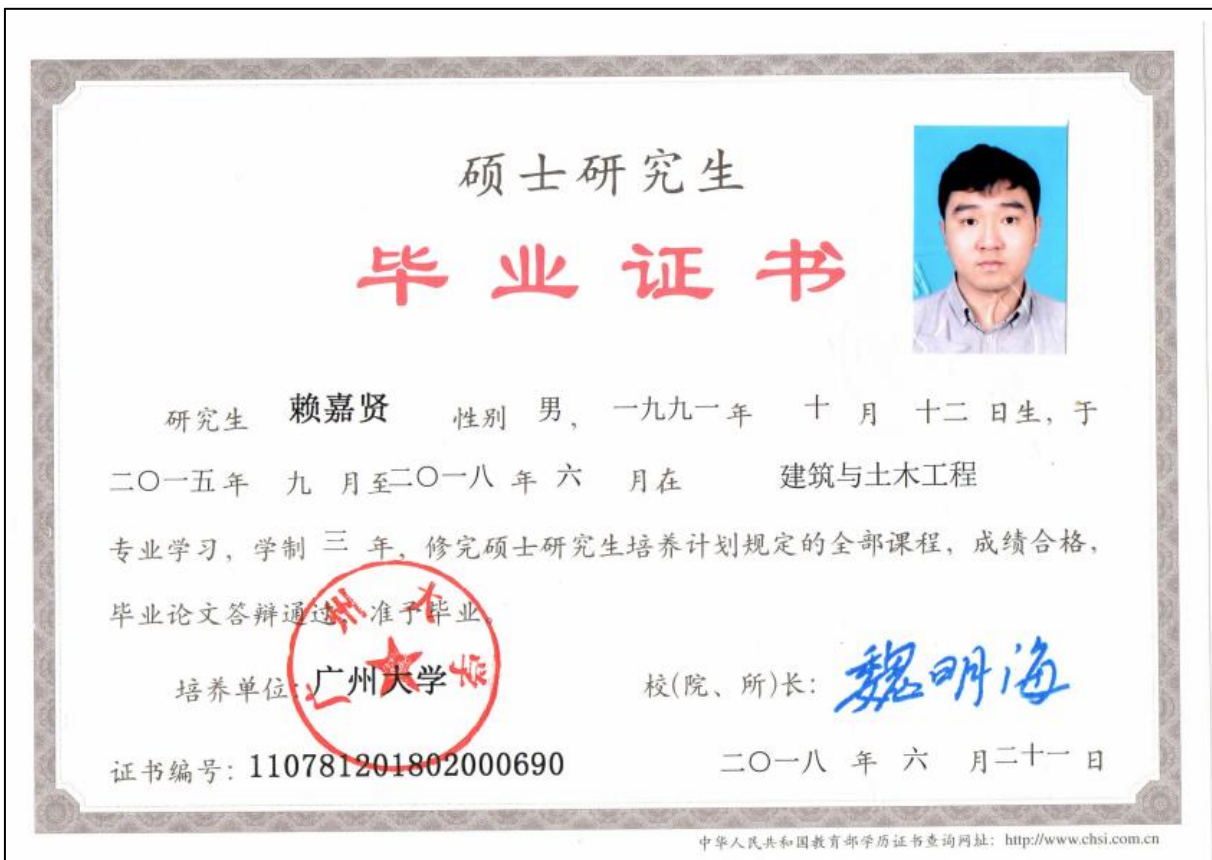 硕士研究生
毕业证书
研究生 赖嘉贤 性别 男, 一九九一年 十 月 十二 日生, 于
二〇一五年 九 月至二〇一八 年 六 月在 建筑与土木工程
专业学习, 学制 三 年, 修完硕士研究生培养计划规定的全部课程, 成绩合格,
毕业论文答辩通过, 准予毕业。
广州大学
培养单位: 广州大学 校(院、所)长: 魏明海
证书编号: 110781201802000690 二〇一八 年 六 月二十一 日
中华人民共和国教育部学历证书查询网址: http://www.chsi.com.cn